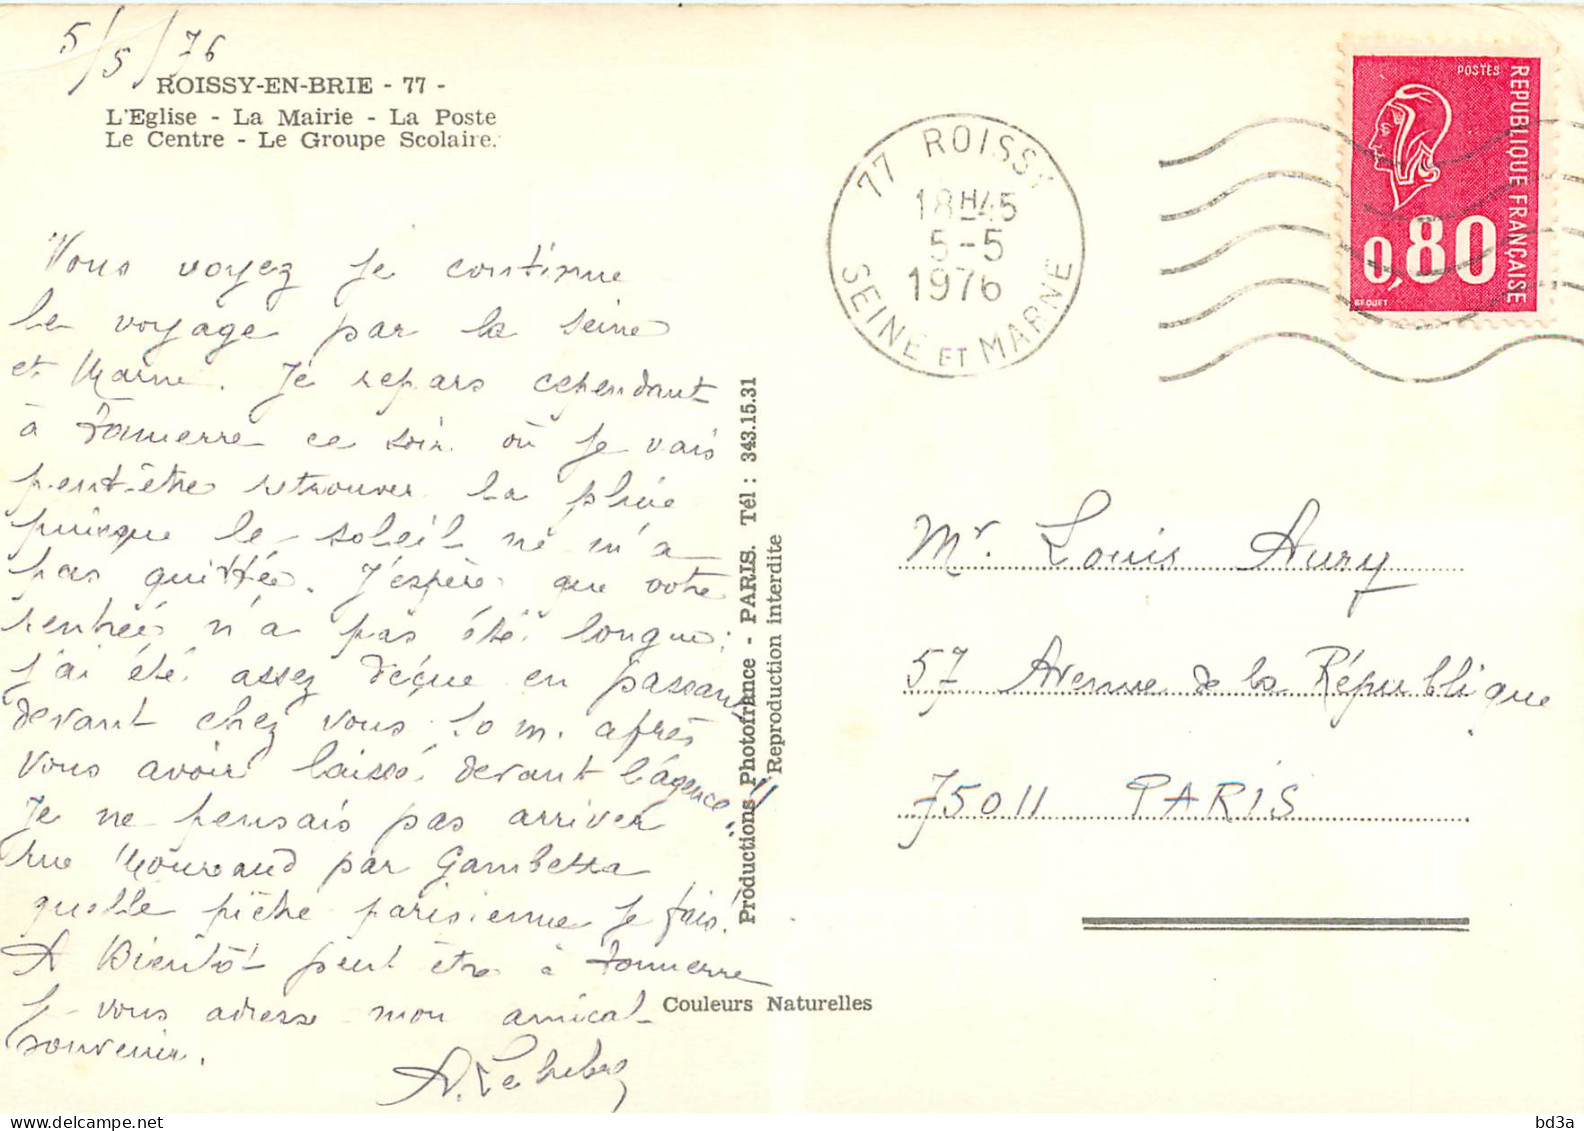 5/5/76
ROISSY-EN-BRIE - 77 -
L'Eglise - La Mairie - La Poste
Le Centre - Le Groupe Scolaire.
Vous voyez je continue
le voyage par la seine
et Marne. Je repars cependant
à Tonnerre ce soir où je vais
peut-être retrouver la pluie
puisque le soleil ne m'a
pas quittée. J'espère que votre
rentrée n'a pas été longue;
j'ai été assez déçue en passant
devant chez vous 10 m. après
vous avoir laissé devant l'agence!!
Je ne pensais pas arriver
rue par Gambetta
quelle piètre parisienne je fais!
A Bientôt peut être à Tonnerre
Je vous adresse mon amical
souvenir.
Productions Photofrance - PARIS. Tél : 343.15.31
Reproduction interdite
Couleurs Naturelles
77 ROISSY
18H45
5-5
1976
SEINE ET MARNE
POSTES
REPUBLIQUE FRANÇAISE
0,80
BEQUET
Mr. Louis Aury
57 Avenue de la République
75011 PARIS
bd3a